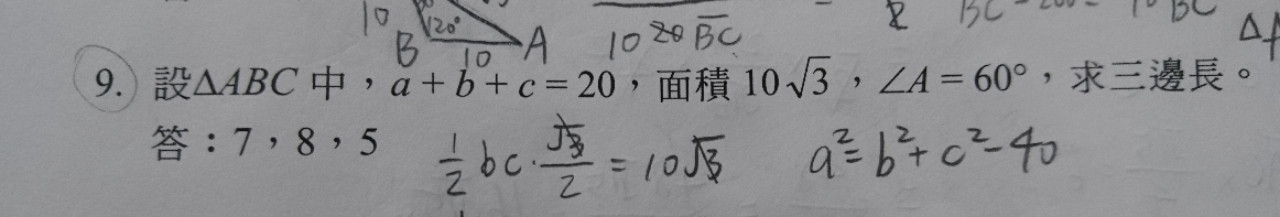 10 120° B 10 A 10 20 BC
9. 設△ABC 中，a + b + c = 20，面積 10√3，∠A = 60°，求三邊長。
答：7，8，5 1/2 bc · √3/2 = 10√3 a² = b² + c² - 40